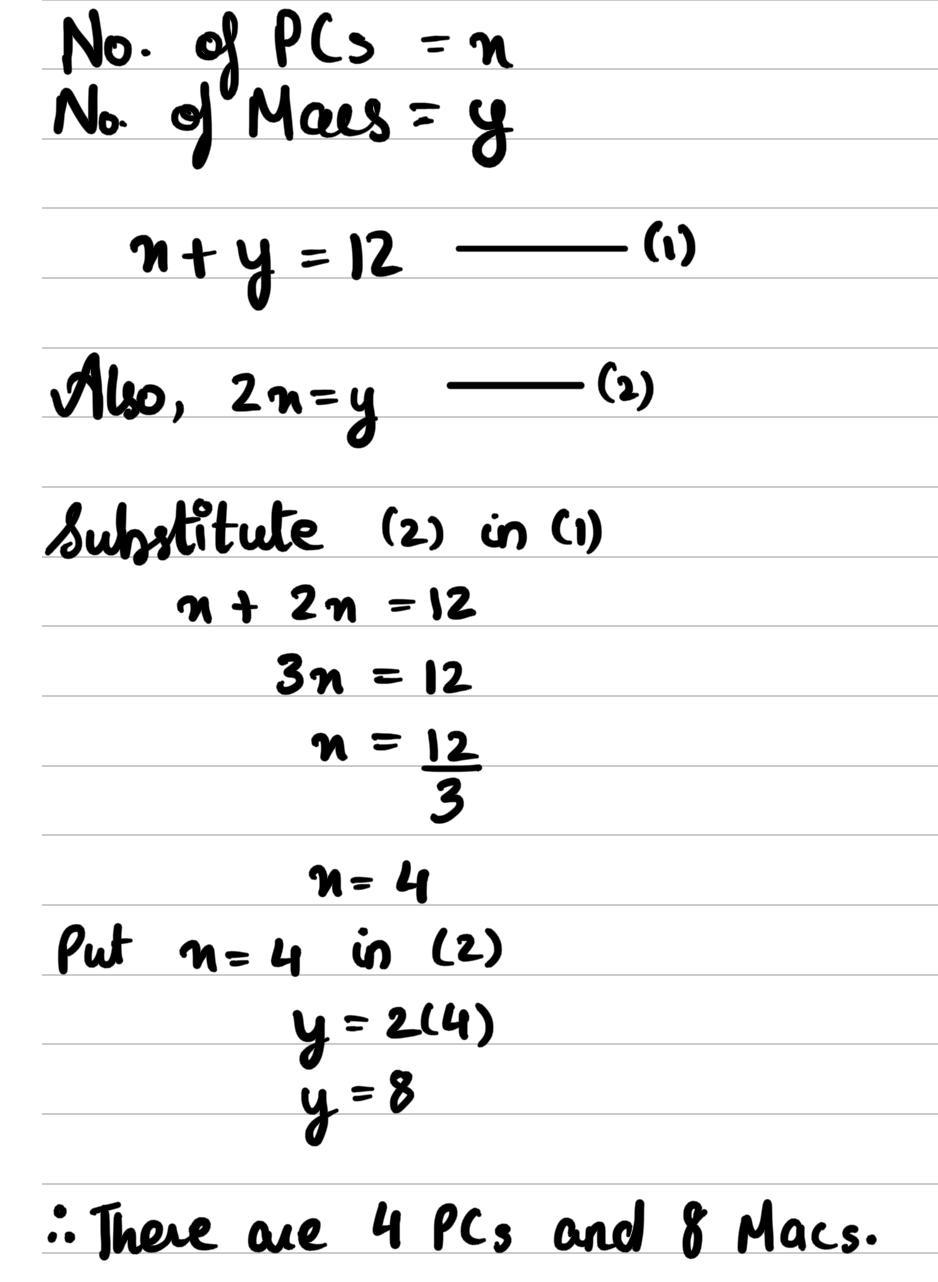 No. of PCs = x
No. of Macs = y
x + y = 12 ——— (1)
Also, 2x = y ——— (2)
Substitute (2) in (1)
x + 2x = 12
3x = 12
x = 12/3
x = 4
Put x = 4 in (2)
y = 2(4)
y = 8
∴ There are 4 PCs and 8 Macs.